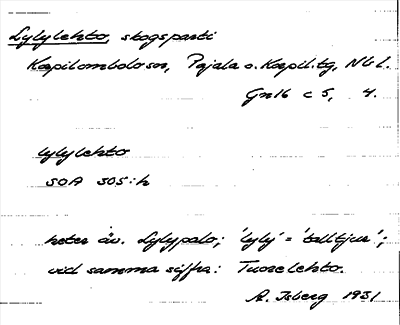 Lylylehto, skogsparti
Korpilombolo sn, Pajala o. Korpil. tg, Nb l.
Gn16 c 5, 4.
lylylehto
SOA 305:h
heter äv. Lylypalo; 'lyly' = 'talltjur';
vid samma siffra: Tuorelehto.
A. Isberg 1931